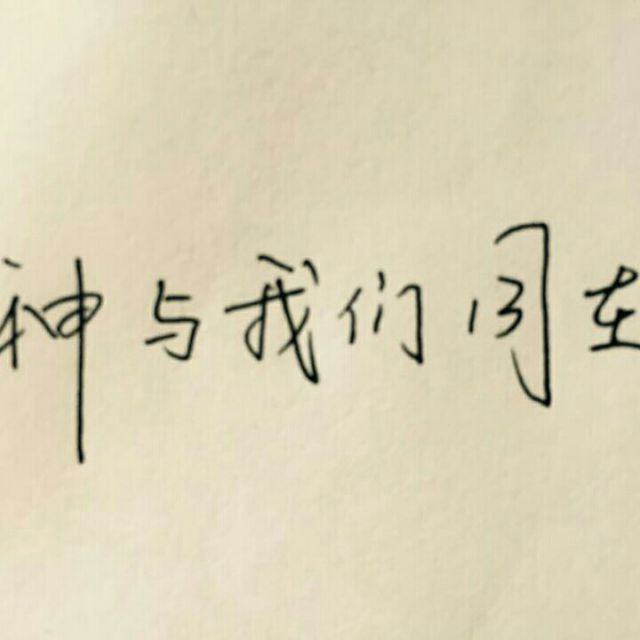 神与我们同在